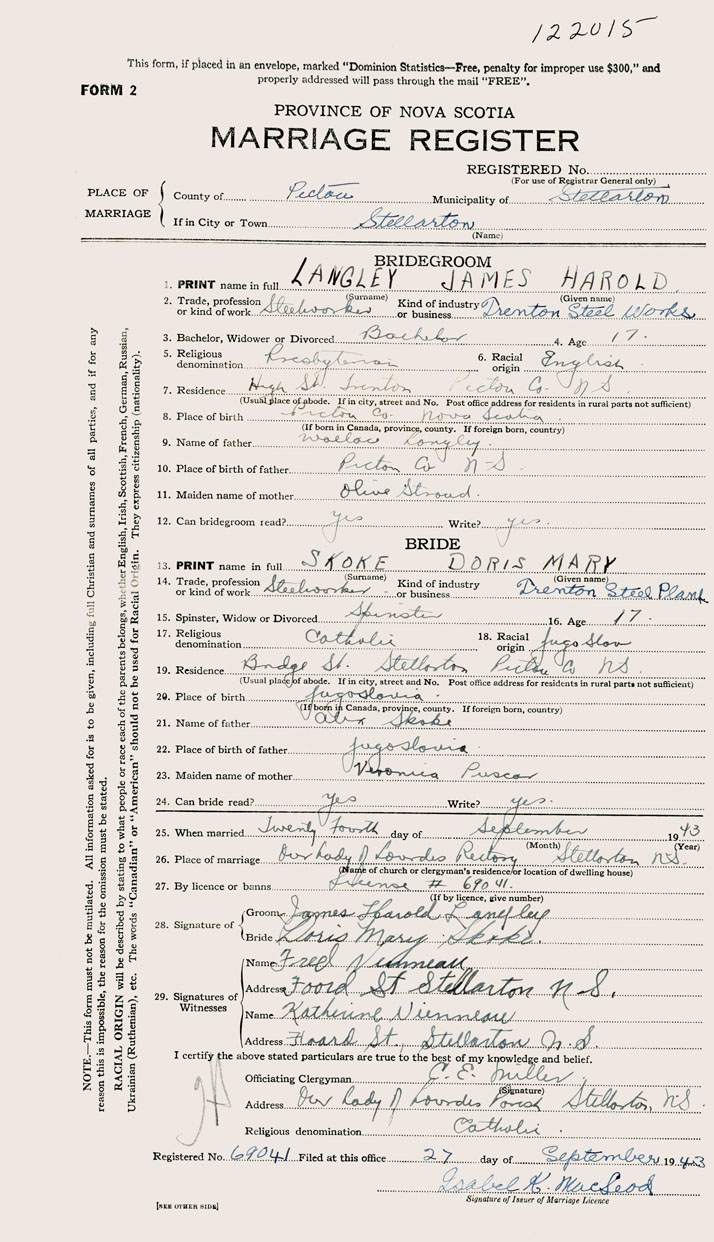 122015
This form, if placed in an envelope, marked "Dominion Statistics—Free, penalty for improper use $300," and
properly addressed will pass through the mail "FREE".
FORM 2
PROVINCE OF NOVA SCOTIA
MARRIAGE REGISTER
REGISTERED No.
(For use of Registrar General only)
PLACE OF MARRIAGE
County of Pictou Municipality of Stellarton
If in City or Town Stellarton
(Name)
BRIDEGROOM
1. PRINT name in full LANGLEY JAMES HAROLD
(Surname) (Given name)
2. Trade, profession or kind of work Steelworker Kind of industry or business Trenton Steel Works
3. Bachelor, Widower or Divorced Bachelor 4. Age 17.
5. Religious denomination Presbyterian 6. Racial origin English
7. Residence High St. Trenton Pictou Co. N S
(Usual place of abode. If in city, street and No. Post office address for residents in rural parts not sufficient)
8. Place of birth Pictou Co. Nova Scotia
(If born in Canada, province, county. If foreign born, country)
9. Name of father Wallace Langley.
10. Place of birth of father Pictou Co N-S.
11. Maiden name of mother Olive Stroud.
12. Can bridegroom read? yes Write? yes.
BRIDE
13. PRINT name in full SKOKE DORIS MARY
(Surname) (Given name)
14. Trade, profession or kind of work Steelworker Kind of industry or business Trenton Steel Plant
15. Spinster, Widow or Divorced Spinster 16. Age 17.
17. Religious denomination Catholic 18. Racial origin Jugo Slov
19. Residence Bridge St. Stellarton Pictou Co NS.
(Usual place of abode. If in city, street and No. Post office address for residents in rural parts not sufficient)
20. Place of birth Jugoslavia.
(If born in Canada, province, county. If foreign born, country)
21. Name of father Alex Skoke
22. Place of birth of father Jugoslavia.
23. Maiden name of mother Veronica Puscar
24. Can bride read? Yes Write? yes.
25. When married Twenty Fourth day of September 1943
(Month) (Year)
26. Place of marriage Our Lady of Lourdes Rectory Stellarton NS.
(Name of church or clergyman's residence/or location of dwelling house)
27. By licence or banns License # 69041.
(If by licence, give number)
28. Signature of
Groom James Harold Langley
Bride Doris Mary Skoke.
29. Signatures of Witnesses
Name Fred Vienneau
Address Foord St Stellarton N S.
Name Katherine Vienneau
Address Foard St., Stellarton N.S
I certify the above stated particulars are true to the best of my knowledge and belief.
Officiating Clergyman C. E. Miller
(Signature)
Address Our Lady of Lourdes Parish Stellarton, NS.
Religious denomination Catholic.
Registered No. 69041 Filed at this office 27 day of September 1943
Isabel K. MacLeod
Signature of Issuer of Marriage Licence
[SEE OTHER SIDE]
NOTE.—This form must not be mutilated. All information asked for is to be given, including full Christian and surnames of all parties, and if for any
reason this is impossible, the reason for the omission must be stated.
RACIAL ORIGIN will be described by stating to what people or race each of the parents belongs, whether English, Irish, Scottish, French, German, Russian,
Ukrainian (Ruthenian), etc. The words "Canadian" or "American" should not be used for Racial Origin. They express citizenship (nationality).